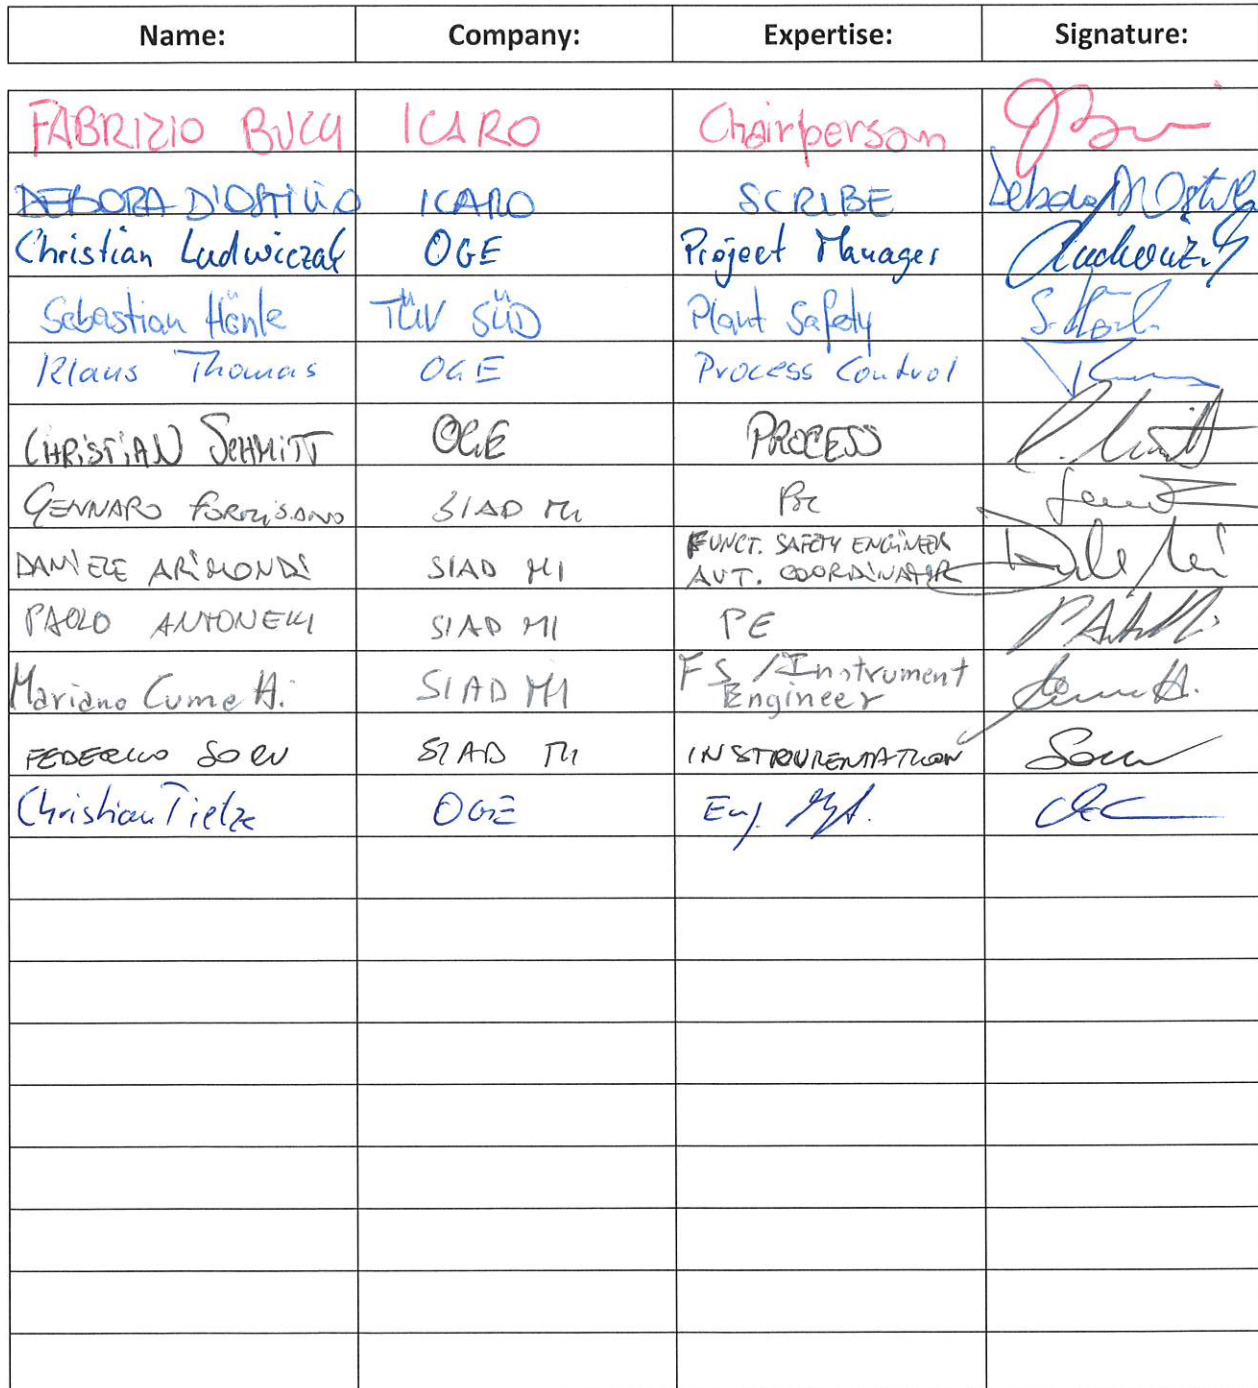 Name: Company: Expertise: Signature:
FABRIZIO BUCCI ICARO Chairperson
DEBORA D'OSTILIO ICARO SCRIBE Debora D'Ostilio
Christian Ludwiczak OGE Project Manager Ludwiczak
Sebastian Hänle TÜV SÜD Plant Safety S. Hänle
Klaus Thomas OGE Process Control
CHRISTIAN SCHMITT OGE PROCESS C. Schmitt
GENNARO FORMISANO SIAD MI
DANIELE ARIMONDI SIAD MI FUNCT. SAFETY ENGINEER
AUT. COORDINATOR
PAOLO ANTONELLI SIAD MI PE P. Antonelli
Mariano Cumetti SIAD MI FS / Instrument
Engineer
FEDERICO SORU SIAD MI INSTRUMENTATION Soru
Christian Tietze OGE Eng. Mgt.